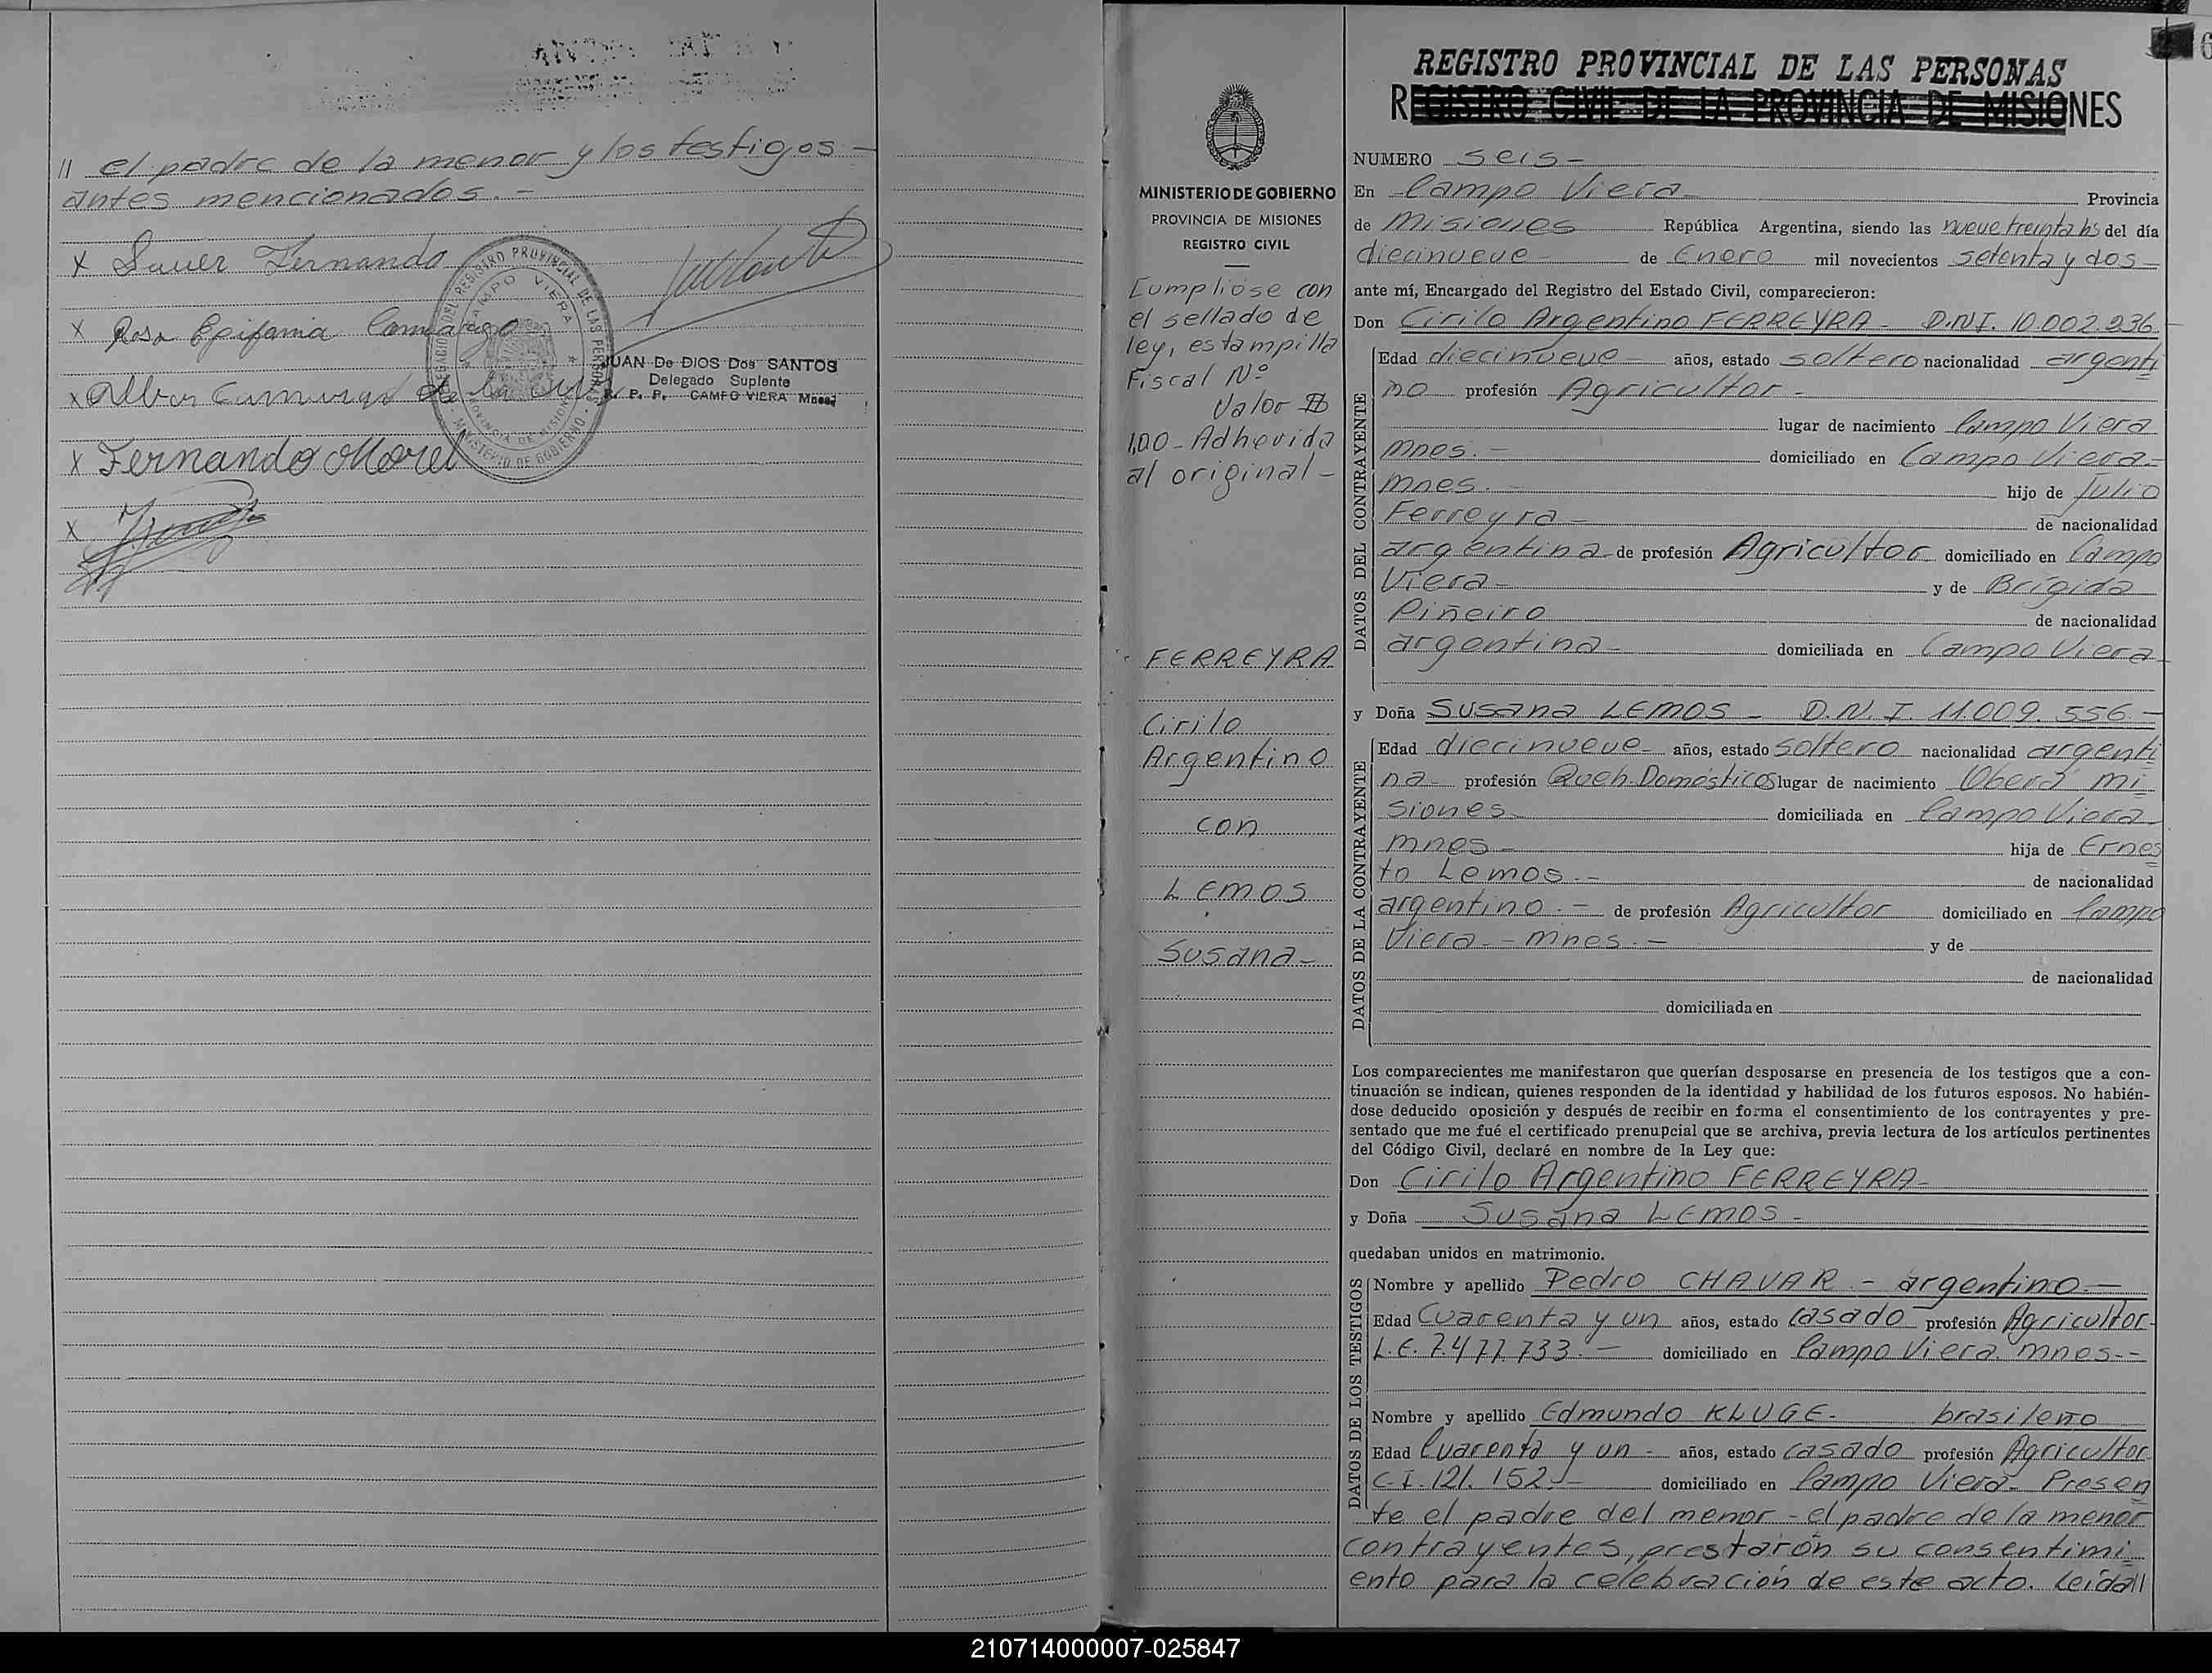 // el padre de la menor y los testigos -
antes mencionados. -
x Sauer Fernando
x Rosa Epifania Camargo
JUAN De DIOS Dos SANTOS
Delegado Suplente
R. P. P. CAMPO VIERA Mnes
x Alba Camargo de
x Fernando Morel
x
DELEGACION DEL REGISTRO PROVINCIAL DE LAS PERSONAS
CAMPO VIERA
PROVINCIA DE MISIONES
MINISTERIO DE GOBIERNO
6
REGISTRO PROVINCIAL DE LAS PERSONAS
REGISTRO CIVIL DE LA PROVINCIA DE MISIONES
MINISTERIO DE GOBIERNO
PROVINCIA DE MISIONES
REGISTRO CIVIL
Cumpliose con
el sellado de
ley, estampilla
Fiscal Nº
Valor $
1,00 - Adherida
al original -
FERREYRA
Cirilo
Argentino
con
LEMOS
Susana -
NUMERO seis -
En Campo Viera Provincia
de Misiones República Argentina, siendo las nueve treinta hs del día
diecinueve de Enero mil novecientos setenta y dos -
ante mí, Encargado del Registro del Estado Civil, comparecieron:
Don Cirilo Argentino FERREYRA - D.N.I. 10.002.936 -
DATOS DEL CONTRAYENTE
Edad diecinueve - años, estado soltero nacionalidad argenti
no profesión Agricultor -
lugar de nacimiento Campo Viera
Mnes. - domiciliado en Campo Viera -
Mnes. - hijo de Julio
Ferreyra - de nacionalidad
argentina de profesión Agricultor domiciliado en Campo
Viera - y de Brígida
Piñeiro de nacionalidad
argentina - domiciliada en Campo Viera -
y Doña Susana LEMOS - D.N.I. 11.009.556 -
DATOS DE LA CONTRAYENTE
Edad diecinueve - años, estado soltero nacionalidad argenti
na - profesión Queh. Domésticos lugar de nacimiento Oberá Mi
siones domiciliada en Campo Viera -
Mnes - hija de Ernes
to Lemos. - de nacionalidad
argentino. - de profesión Agricultor domiciliado en Campo
Viera - Mnes. - y de
de nacionalidad
domiciliada en
Los comparecientes me manifestaron que querían desposarse en presencia de los testigos que a con-
tinuación se indican, quienes responden de la identidad y habilidad de los futuros esposos. No habién-
dose deducido oposición y después de recibir en forma el consentimiento de los contrayentes y pre-
sentado que me fué el certificado prenupcial que se archiva, previa lectura de los artículos pertinentes
del Código Civil, declaré en nombre de la Ley que:
Don Cirilo Argentino FERREYRA -
y Doña Susana LEMOS -
quedaban unidos en matrimonio.
DATOS DE LOS TESTIGOS
Nombre y apellido Pedro CHAVAR. - argentino. -
Edad Cuarenta y un años, estado casado profesión Agricultor -
L.E. 7.477.733. - domiciliado en Campo Viera. Mnes. -
Nombre y apellido Edmundo KLUGE - brasileño
Edad Cuarenta y un - años, estado casado profesión Agricultor
C.I. 121.152. - domiciliado en Campo Viera - Presen
te el padre del menor - el padre de la menor
contrayentes, prestarón su consentimi
ento para la celebración de este acto. Leida//
210714000007-025847